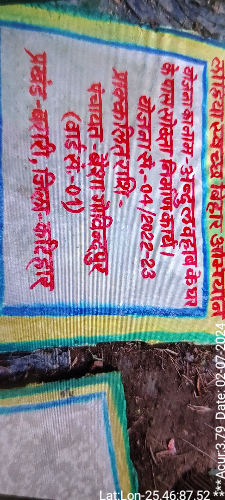 लोहिया स्वच्छ बिहार अभियान
योजना का नाम - अब्दुल वहाब के घर
के पास सोख्ता निर्माण कार्य।
योजना सं.- 04/2022-23
प्राक्कलित राशि -
पंचायत - गोविन्दपुर
(वार्ड सं.- 01)
प्रखंड - , जिला - कटिहार
Lat:Lon-25.46:87.52
***Acur:3.79 Date: 02-07-2024